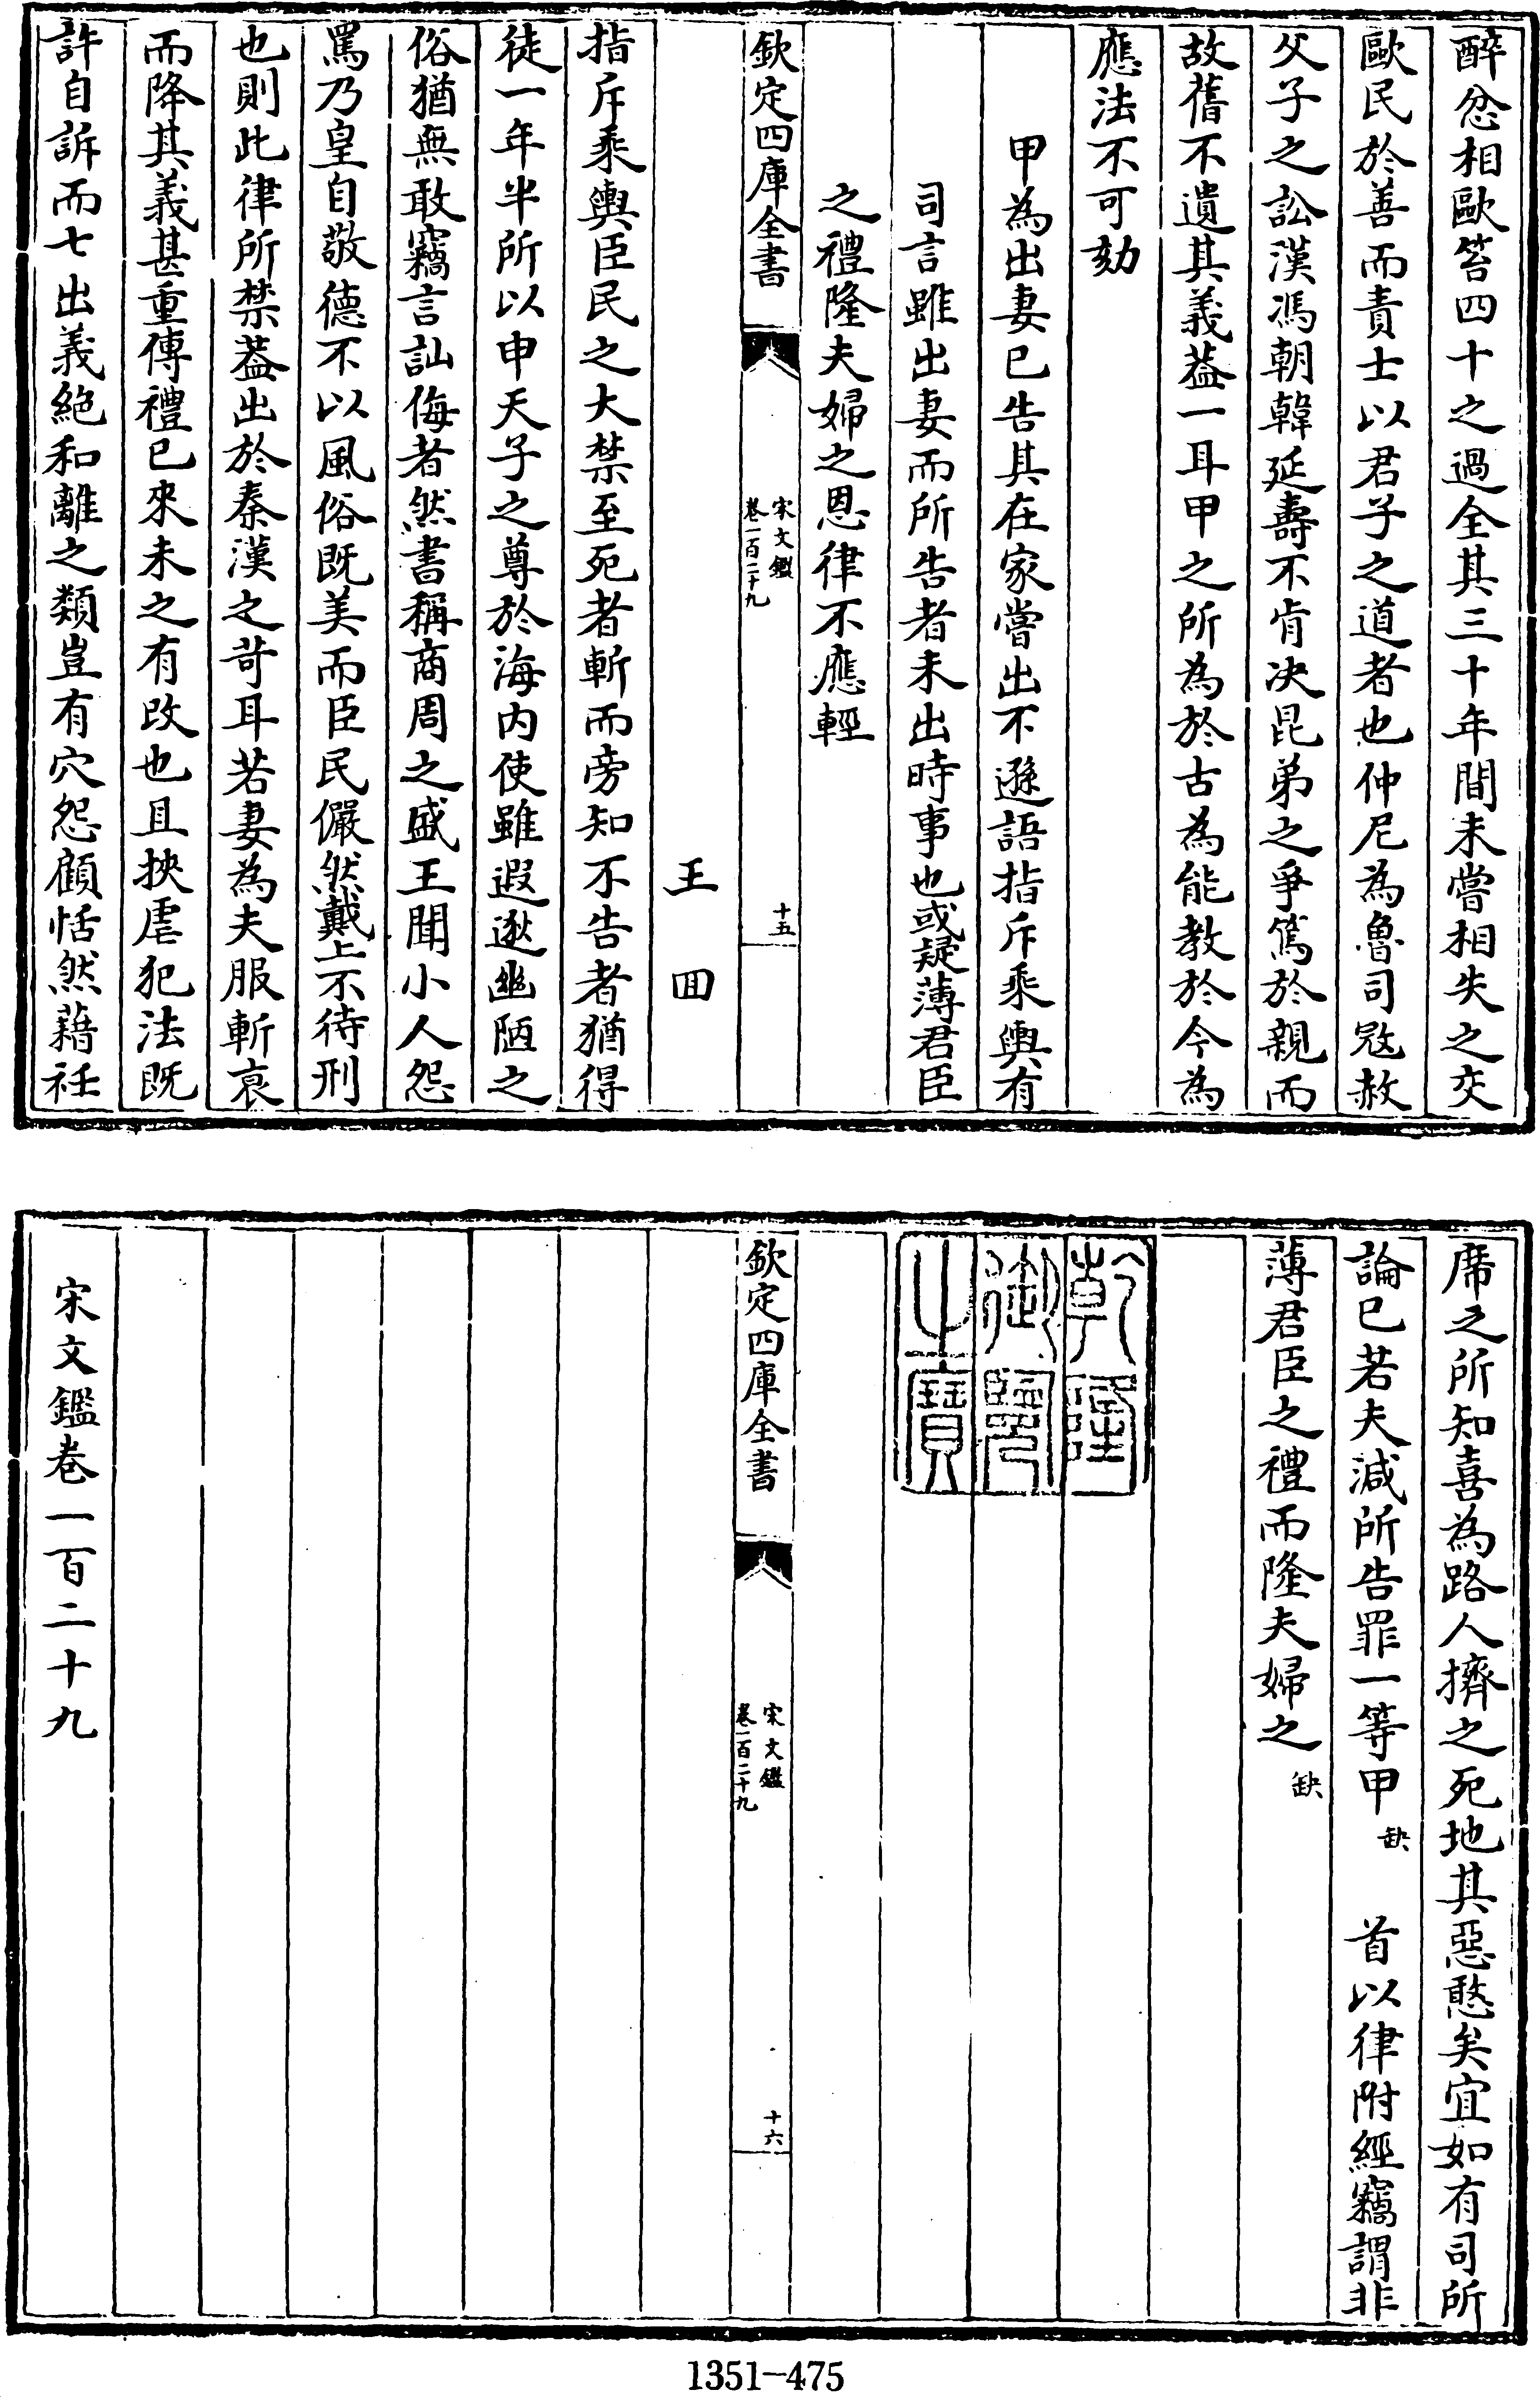 醉忿相歐笞四十之過全其三十年間未嘗相失之交
歐民於善而責士以君子之道者也仲尼為魯司寇赦
父子之訟漢馮朝韓延壽不肯决昆弟之爭篤於親而
故舊不遺其義葢一耳甲之所為於古為能教於今為
應法不可劾
甲為出妻已告其在家嘗出不遜語指斥乘輿有
司言雖出妻而所告者未出時事也或疑薄君臣
之禮隆夫婦之恩律不應輕
欽定四庫全書
宋文鑑
卷一百二十九
十五
王囬
指斥乘輿臣民之大禁至死者斬而旁知不告者猶得
徒一年半所以申天子之尊於海内使雖遐逖幽陋之
俗猶無敢竊言訕侮者然書稱商周之盛王聞小人怨
罵乃皇自敬德不以風俗既美而臣民儼然戴上不待刑
也則此律所禁葢出於秦漢之苛耳若妻為夫服斬衰
而降其義甚重傳禮已來未之有改也且挾虐犯法既
許自訴而七出義絶和離之類豈有穴怨顧恬然藉衽
席之所知喜為路人擠之死地其惡憨矣宜如有司所
論已若夫減所告罪一等甲缺 首以律附經竊謂非
薄君臣之禮而隆夫婦之缺
乾隆
御覽
之寶
欽定四庫全書
宋文鑑
卷一百二十九
十六
宋文鑑卷一百二十九
1351-475